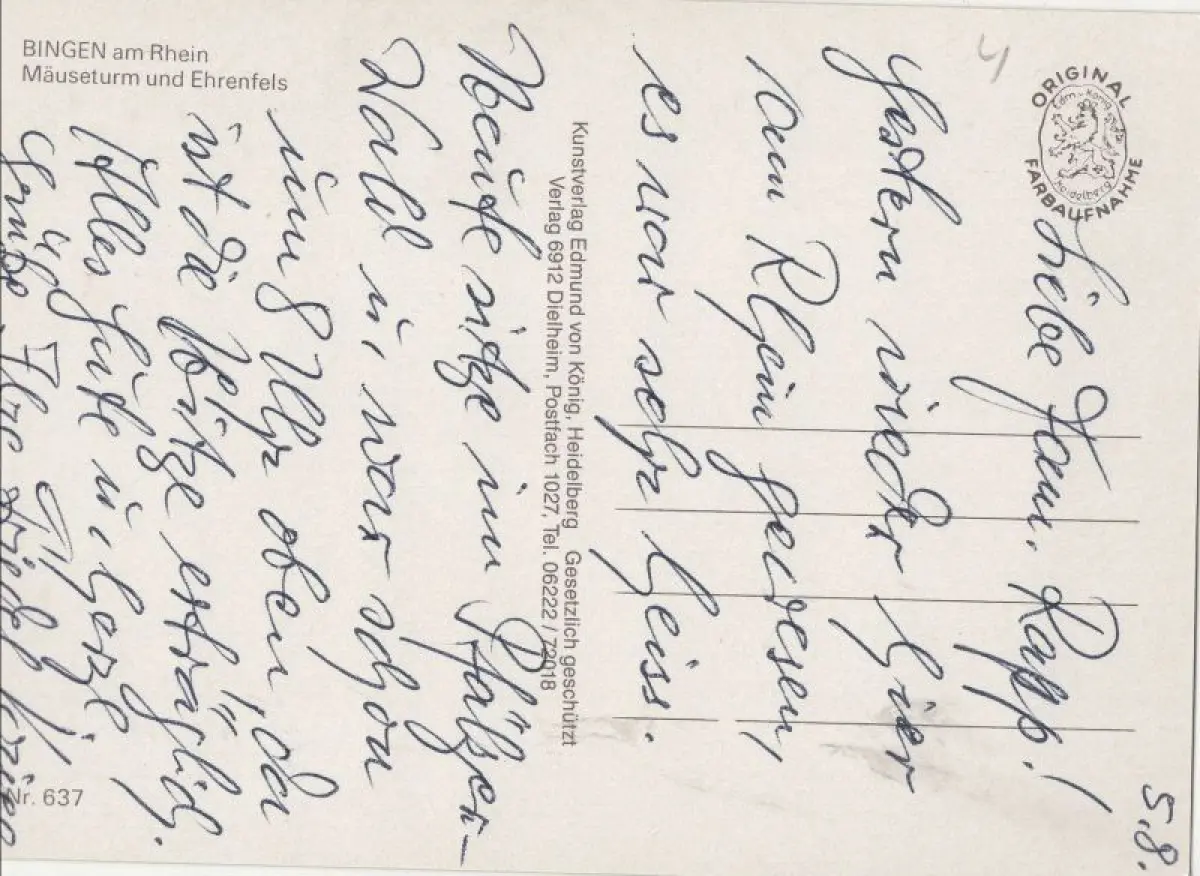 BINGEN am Rhein
Mäuseturm und Ehrenfels
ORIGINAL
FARBAUFNAHME
Heidelberg
4
Kunstverlag Edmund von König, Heidelberg Gesetzlich geschützt
Verlag 6912 Dielheim, Postfach 1027, Tel. 06222 / 72018
Nr. 637
5.8.
Liebe Fam. Rapp!
Gestern wieder hier
am Rhein gewesen,
es war sehr heiss.
Heute sitze im Pfälzer-
Wald u. war schon
um 8 Uhr oben, da
ist die Hitze erträglich.
Alles Gute u. herzl.
Grüße Ihre